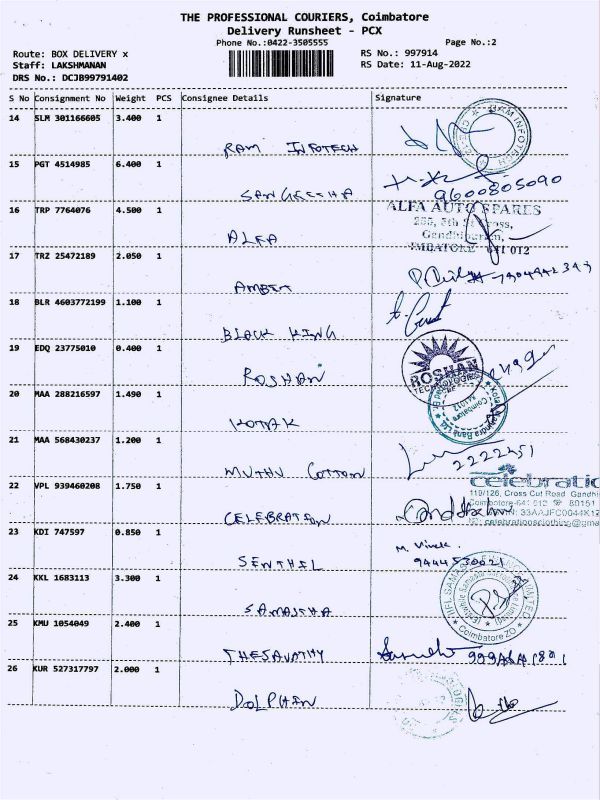 THE PROFESSIONAL COURIERS, Coimbatore
Delivery Runsheet - PCX
Phone No.:0422-3505555 Page No.:2
Route: BOX DELIVERY x RS No.: 997914
Staff: LAKSHMANAN RS Date: 11-Aug-2022
DRS No.: DCJB99791402
S No Consignment No Weight PCS Consignee Details Signature
14 SLM 301166605 3.400 1
RAM INFOTECH
15 PGT 4514985 6.400 1
SANGEETHA 9600805090
16 TRP 7764076 4.500 1 ALFA AUTO SPARES
5th Cross,
Gandhipuram,
ALFA 641 012
17 TRZ 25472189 2.050 1
AMBER
18 BLR 4603772199 1.100 1
BLACK KING
19 EDQ 23775010 0.400 1
ROSHAN ROSHAN
TECHNOLOGIES
20 MAA 288216597 1.490 1
KOTAK Coimbatore
21 MAA 568430237 1.200 1
MUTHU COTTON 2222451
22 VPL 939460208 1.750 1 celebratio
119/126, Cross Cut Road Gandhi
CELEBRATION
23 KDI 747597 0.850 1 M. Vivek.
SENTHIL 9444530021
24 KKL 1683113 3.300 1
SAMASTHA Coimbatore ZO
25 KMU 1054049 2.400 1
THESAVATHY
26 KUR 527317797 2.000 1
DOLPHIN